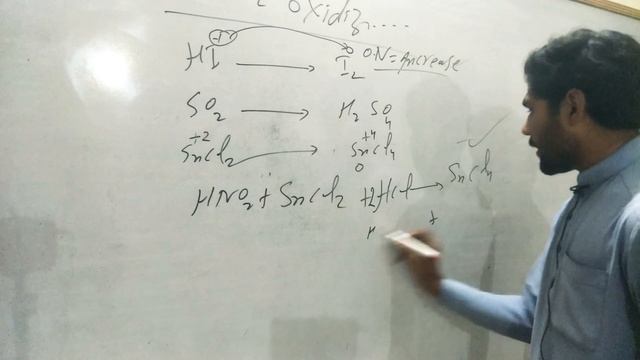 oxidiz....
HI (-1) → I₂ 0 O.N = increase
SO₂ → H₂SO₄
+2 +4
SnCl₂ → SnCl₄
HNO₂ + SnCl₂ + 2HCl → SnCl₄
+